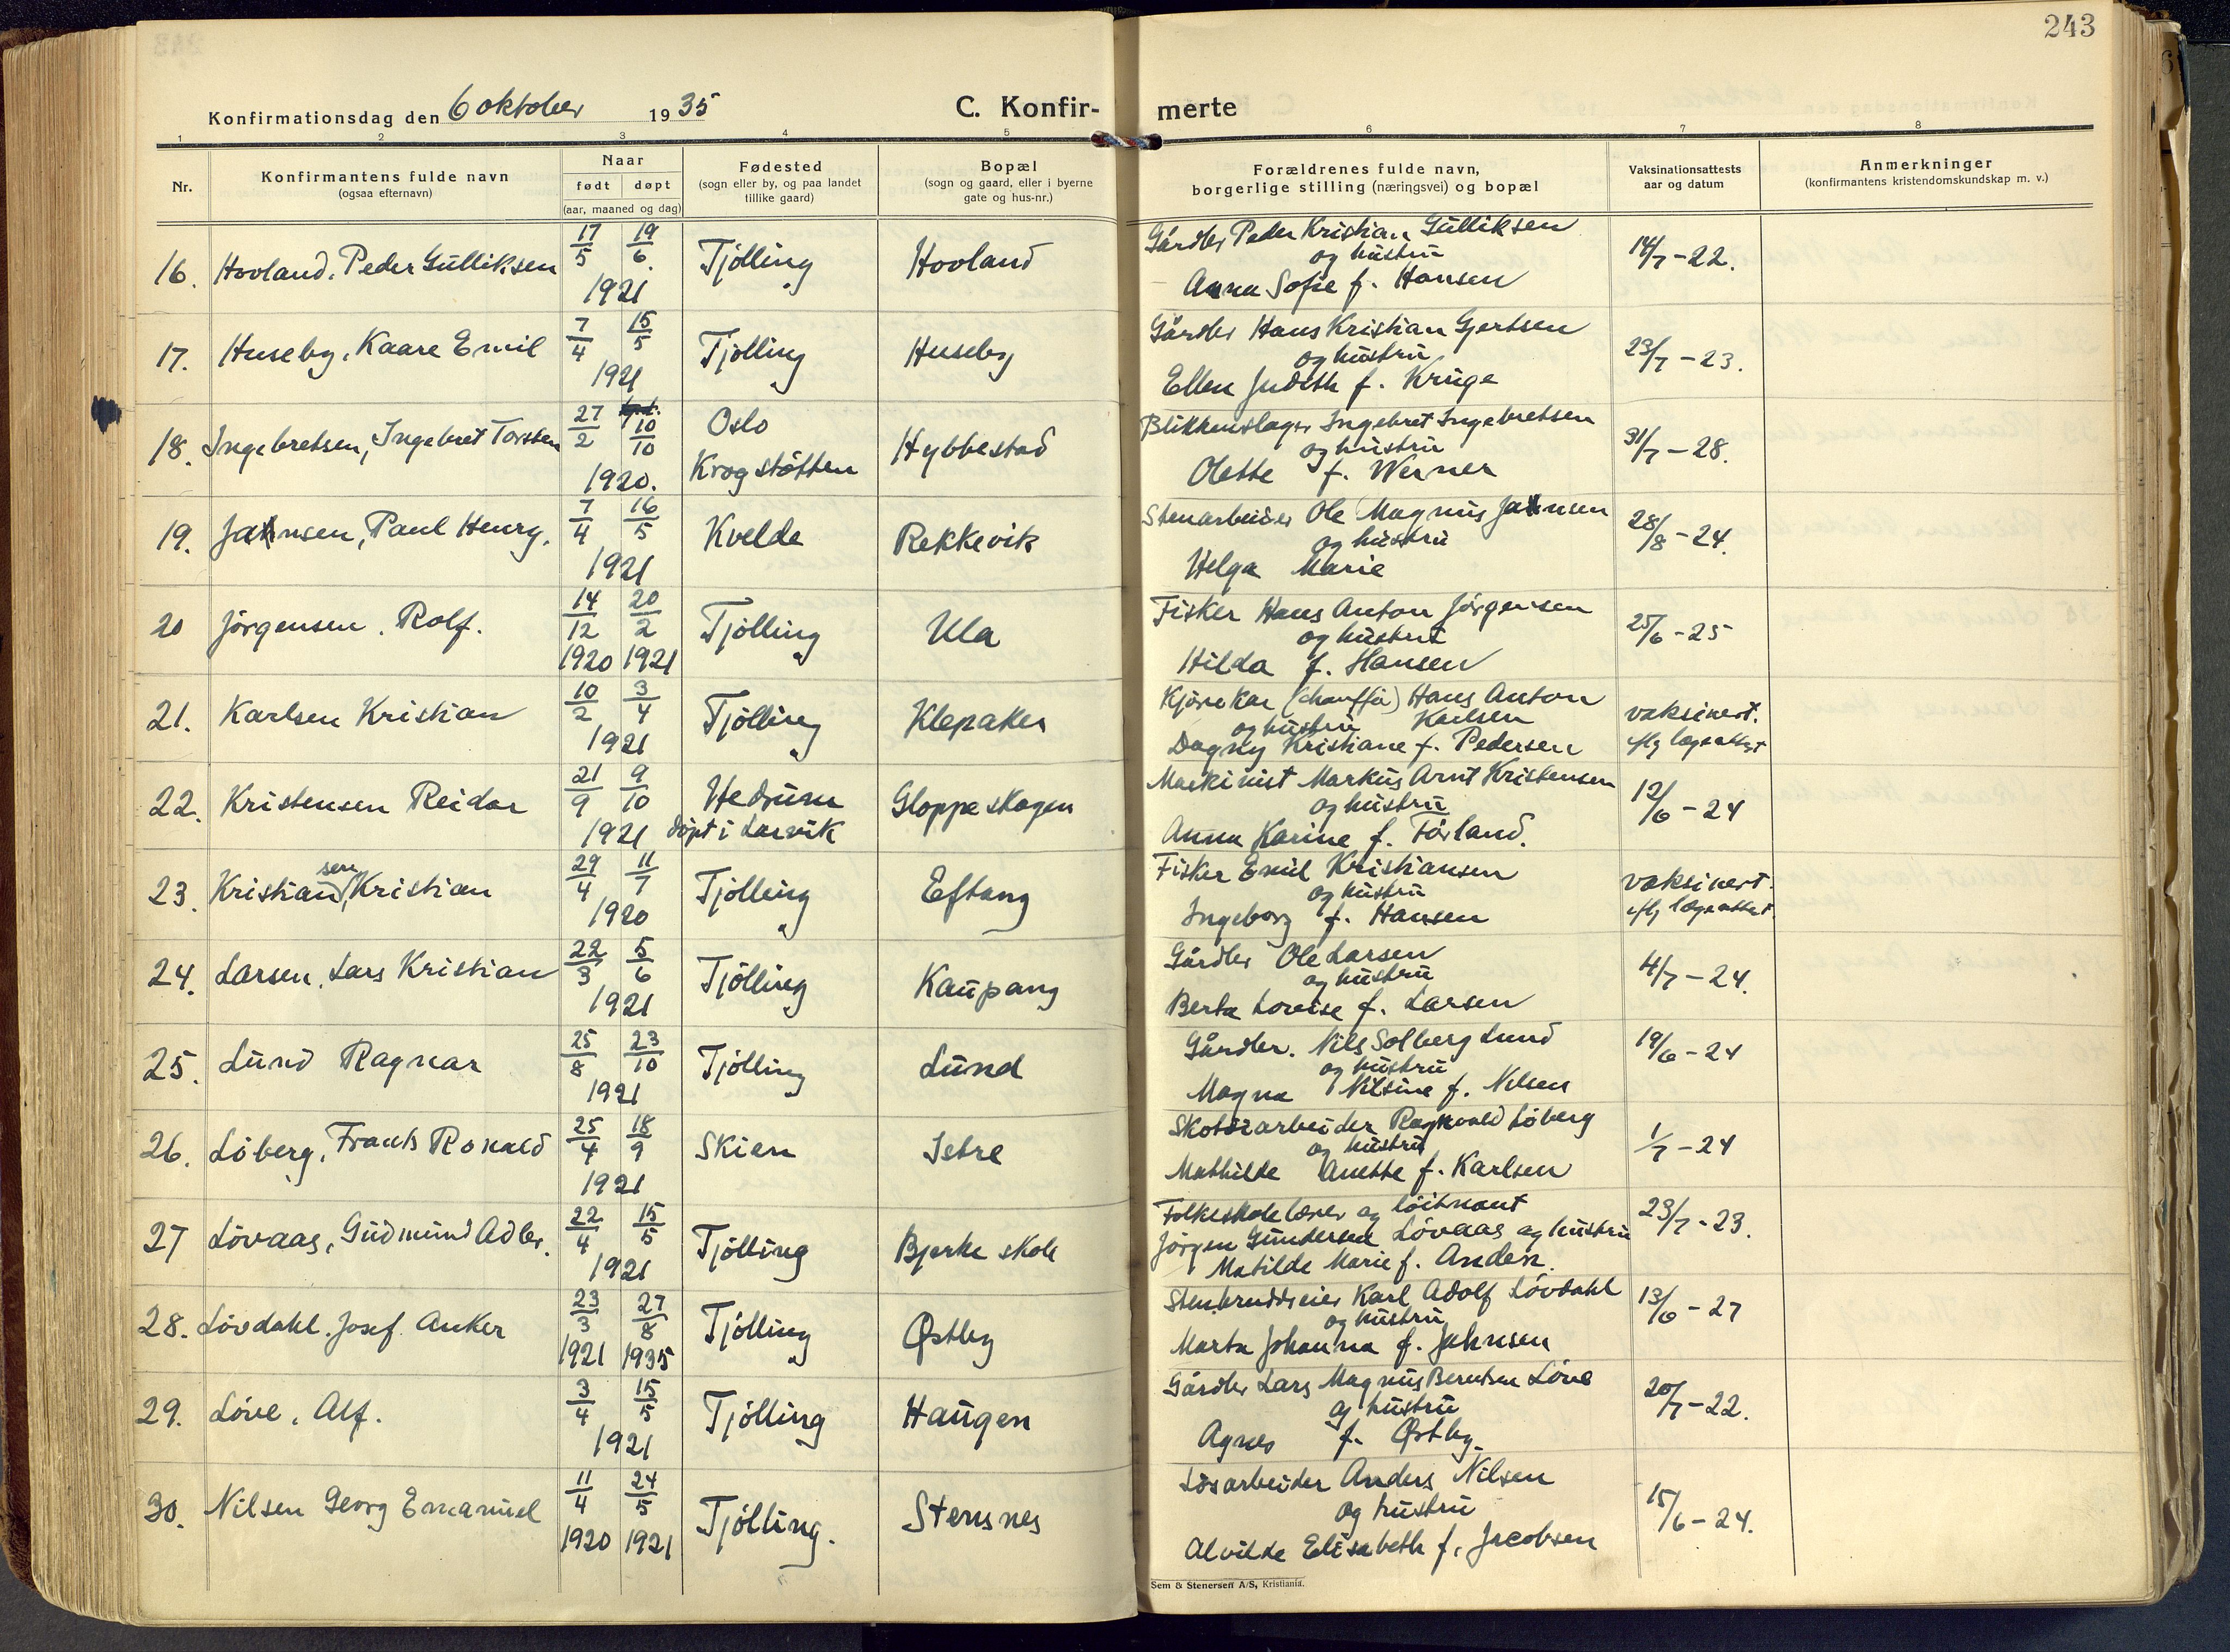 243
Konfirmationsdag den 6 oktober 1935
C. Konfir-
merte
1 2 3 4 5 6 7 8
Nr.
Konfirmantens fulde navn
(ogsaa efternavn)
Naar
født døpt
(aar, maaned og dag)
Fødested
(sogn eller by, og paa landet
tillike gaard)
Bopæl
(sogn og gaard, eller i byerne
gate og hus-nr.)
Forældrenes fulde navn,
borgerlige stilling (næringsvei) og bopæl
Vaksinationsattests
aar og datum
Anmerkninger
(konfirmantens kristendomskundskap m. v.)
16. Hovland, Peder Gulliksen 17/5 19/6. 1921 Tjölling Hovland
Gårdbr Peder Kristian Gulliksen
og hustru
Anna Sofie f. Hansen
14/7-22.
17. Huseby, Kaare Emil 7/4 15/5 1921 Tjölling Huseby
Gårdbr Hans Kristian Gjertsen
og hustru
Ellen Judith f. Kruge
23/7-23.
18. Ingebretsen, Ingebret Torsten 27/2 10/10 1920. Oslo
Krogstötten Hybbestad
Blikkenslager Ingebret Ingebretsen
og hustru
Olette f. Werner
31/7-28.
19. Jahnsen, Paul Henry. 7/4 16/5 1921 Kvelde Rekkevik
Stenarbeider Ole Magnus Jahnsen
og hustru
Helga Marie
28/8-24.
20 Jörgensen. Rolf. 14/12 1920 20/2 1921 Tjölling Ula
Fisker Hans Anton Jörgensen
og hustru
Hilda f. Hansen
25/6-25
21. Karlsen Kristian 10/2 3/4 1921 Tjölling Klepaker
Kjörekar (chaufför) Hans Anton
og hustru Karlsen
Dagny Kristiane f. Pedersen
vaksinert.
iflg lægeattest
22. Kristensen Reidar 21/9 9/10 1921 Hedrum
döpt i Larvik Gloppeskogen
Maskinist Markus Arnt Kristensen
og hustru
Anna Karine f. Förland.
12/6-24
23. Kristiansen, Kristian 29/4 11/7 1920 Tjölling Eftang
Fisker Emil Kristiansen
og hustru
Ingeborg f. Hansen
vaksinert.
iflg lægeattest
24. Larsen, Lars Kristian 22/3 5/6 1921 Tjölling Kaupang
Gårdbr Ole Larsen
og hustru
Berta Lovise f. Larsen
4/7-24.
25. Lund Ragnar 25/8 23/10 1921 Tjölling Lund
Gårdbr. Nils Solberg Lund
og hustru
Magna Nilsine f. Nilsen
19/6-24
26. Löberg, Frants Ronald 25/4 18/9 1921 Skien Istre
Skotöiarbeider Ragnvald Löberg
og hustru
Mathilde Anette f. Karlsen
1/7-24
27 Lövaas, Gudmund Adler. 22/4 15/5 1921 Tjölling Bjerke skole
Folkeskolelærer og löitnant
Jörgen Gundersen Lövaas og hustru
Matilde Marie f. Andersn.
23/7-23.
28. Lövdahl. Josef Anker 23/3 1921 27/8 1935 Tjölling Østby
Stenbruddseier Karl Adolf Lövdahl
og hustru
Marta Johanna f. Jahnsen
13/6-27
29. Löve, Alf. 3/4 15/5 1921 Tjölling Haugen
Gårdbr Lars Magnus Berntsen Löve
og hustru
Agnes f. Østby.
20/7-22.
30. Nilsen Georg Emanuel 11/4 1920 24/5 1921 Tjölling. Stensnes
Lösarbeider Anders Nilsen
og hustru
Alvilde Elisabeth f. Jacobsen
15/6-24.
Sem & Stenersen A/S, Kristiania.